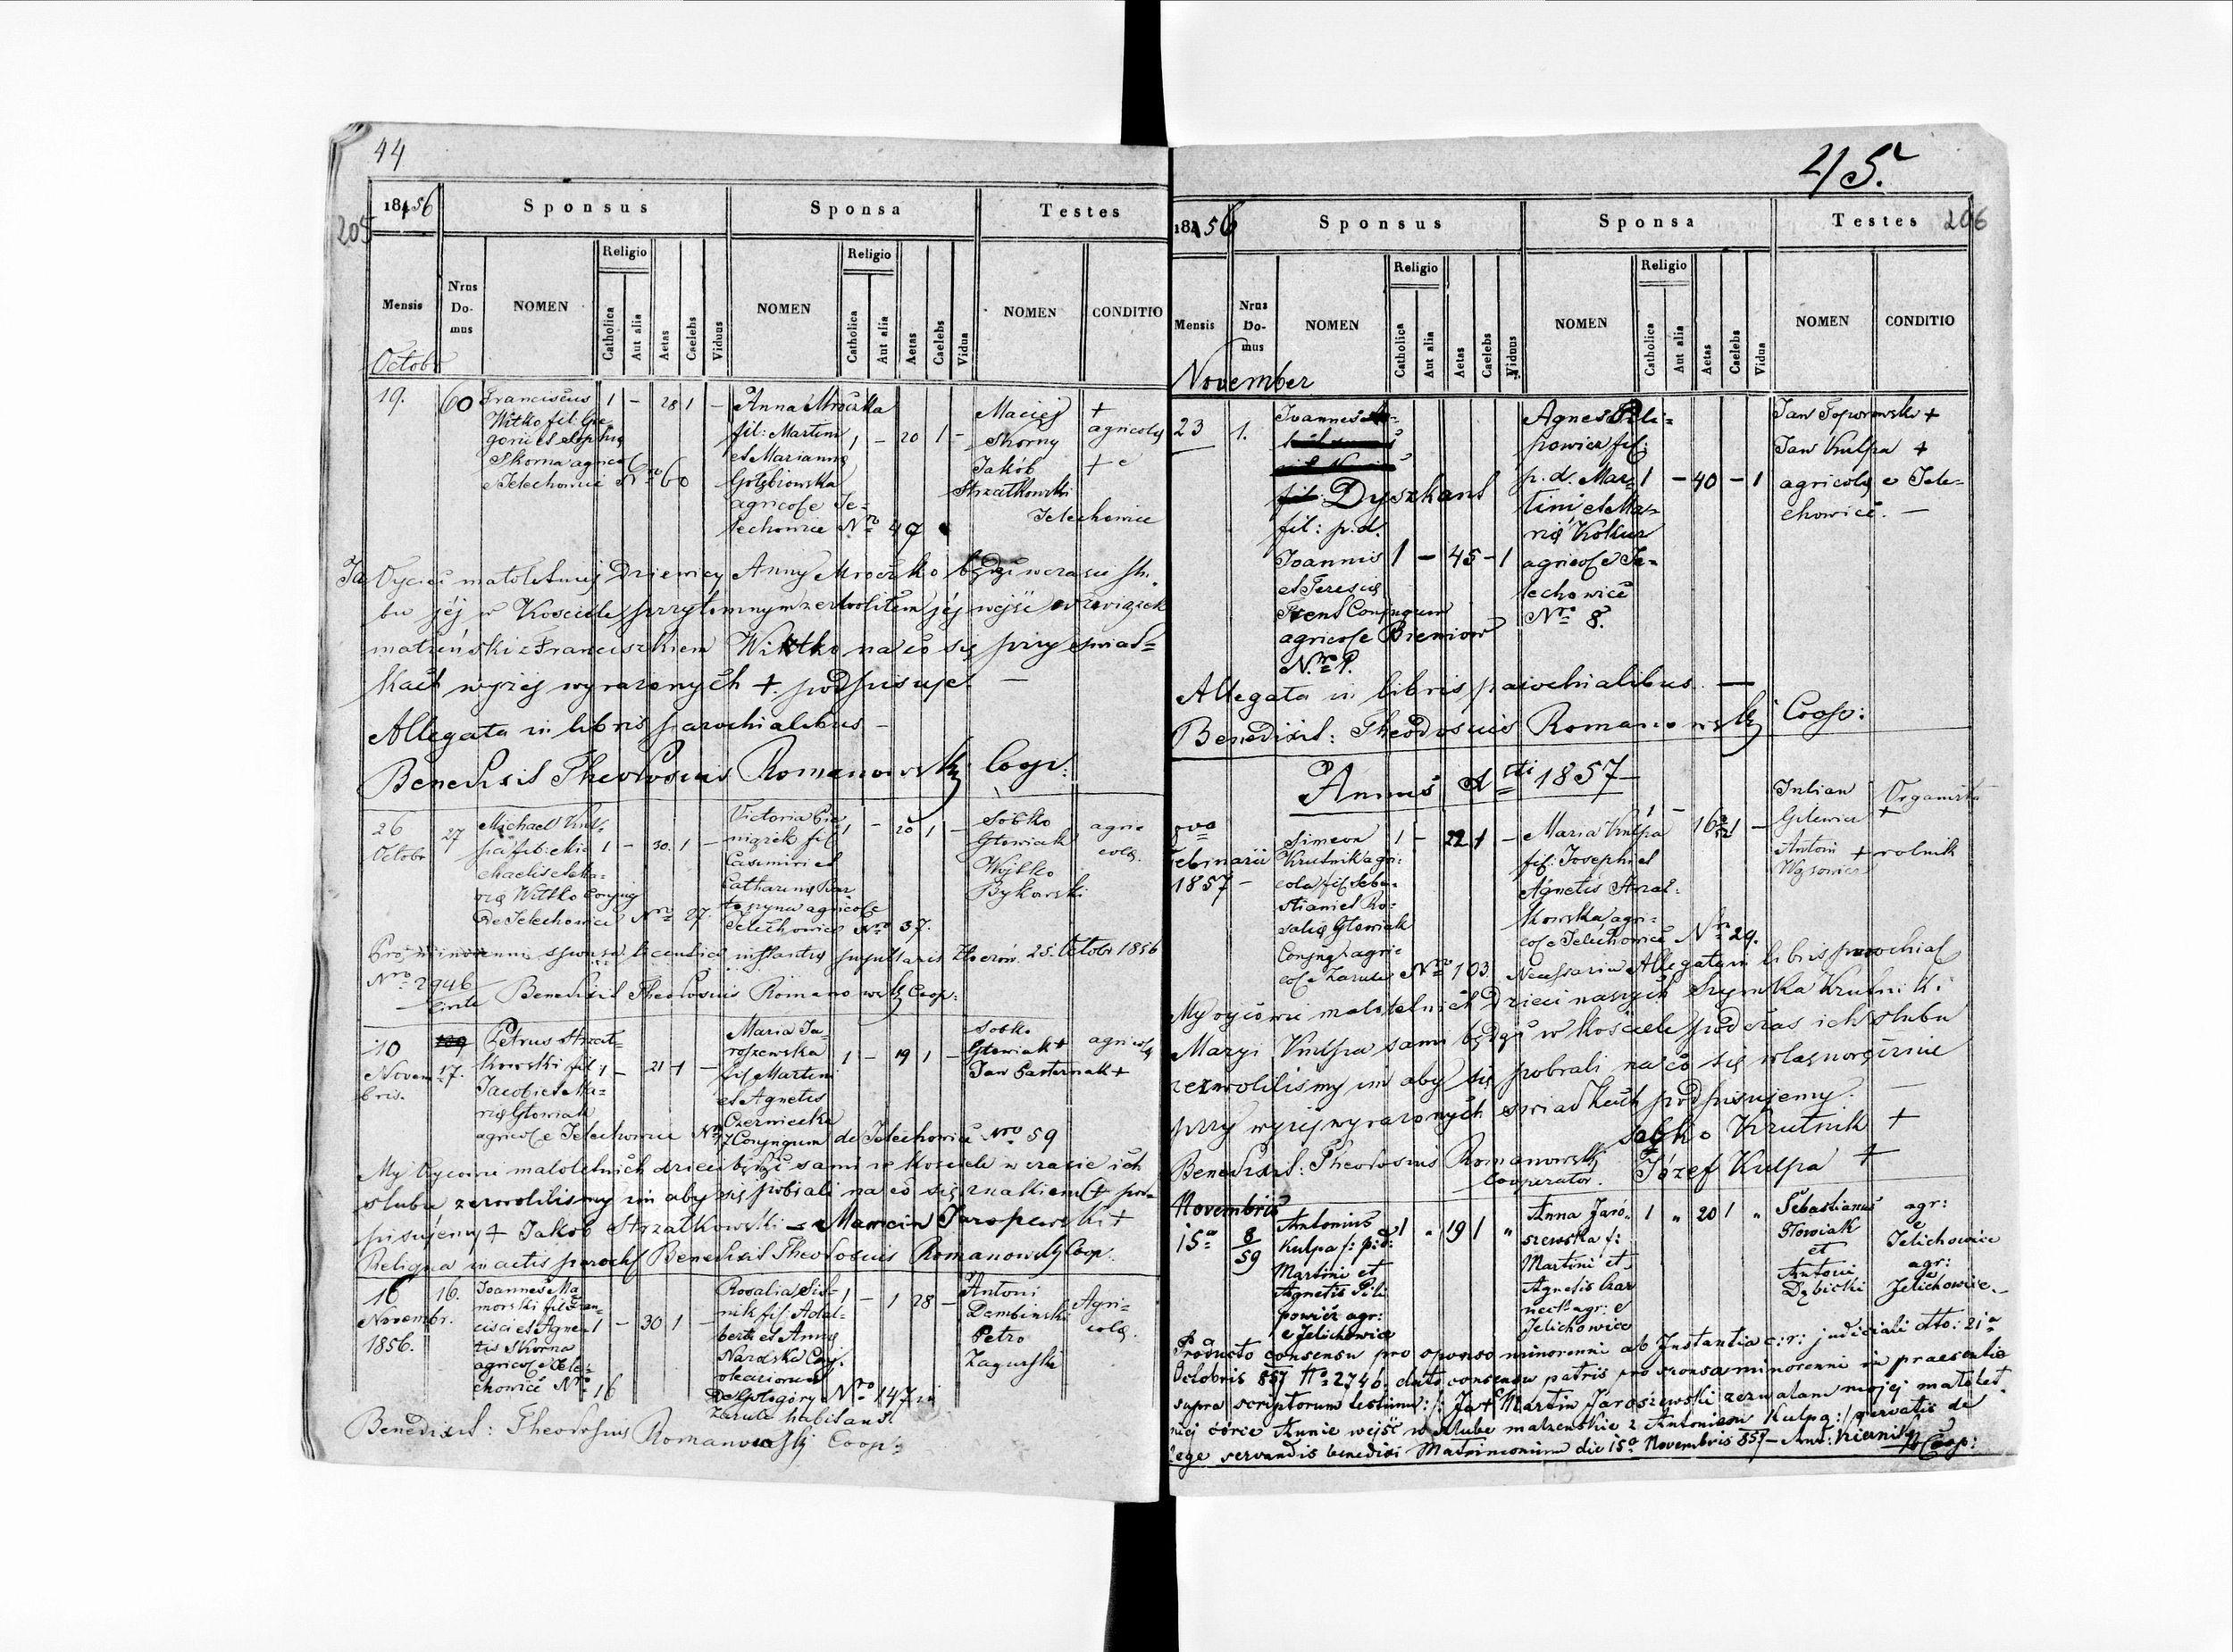 44
205
1856
Sponsus
Sponsa
Testes
Mensis
Nrus Do-mus
NOMEN
Religio
Catholica
Aut alia
Aetas
Caelebs
Viduus
NOMEN
Religio
Catholica
Aut alia
Aetas
Caelebs
Vidua
NOMEN
CONDITIO
Octobr
19.
60
Franciscus
Witko fil: Gre-
gorii et Sophia
Skorna agricol
e Jelechowice Nro 60
1 - 28 1 -
Anna Mroczka
fil: Martini
et Marianna
Gołębiowska
agricol e Je-
lechowice Nro 49
1 - 20 1 -
Maciej
Skorny
Jakób
Strzałkowski
Jelechowice
+
agricola
+ e
Ja Oyciec małoletniej Dziewicy Anny Mroczko będąc w czasie ślu-
bu jéj w Kościele przytomnym zezwoliłem jéj wejść w związek
małżeński z Franciszkiem Witko na co się przy świad-
kach wyżej wyrażonych +. podpisuje. —
Allegata in libris parochialibus —
Benedixit Theodosius Romanowski Coop:
26
Octobr
27
Michael Kul-
pa fil: Mi-
chaelis et Ma-
ria Witko Conjug
de Jelechowice Nro 27.
1 - 30. 1 -
Victoria
fil
Casimiri et
Catharina
agricol e
Jelechowice Nro 37.
1 - 20 1 -
Sobko
Głowiak
Wojtko
Bykowski
agri-
cola.
Pro minorennis sponsa licentia instantia pupillaris Złoczów. 25. Octobr 1856
Nro 2946
Benedixit Theodosius Romanowski Coop:
10
Novem-
bris.
17.
Petrus Strzał-
kowski fil:
Jacobi et Ma-
ria Głowiak
agricol e Jelechowice Nro 17
1 - 21 1 -
Maria Ja-
roszewska
fil Martini
et Agnetis
Czerniecka
Conjugum de Jelechowice Nro 59
1 - 19 1 -
Sobko
Głowiak +
Jan Pasternak +
agricola
My Oycowie małoletnich dzieci będąc sami w kościele w czasie ich
ślubu zezwoliliśmy im aby się pobrali na co się znakiem + pod-
pisujemy + Jakob Strzałkowski — Marcin Jaroszewski +
Reliqua in actis paroch Benedixit Theodosius Romanowski Coop.
16
Novembr.
1856.
16.
Joannes Ma-
morski fil Fran-
cisci et Agne-
tis Skorna
agricol e Jele-
chowice Nro 16
1 - 30 1 -
Rosalia
fil: Adal-
berti et Anna
Conj.
de Gołogóry Nro 147 in
Zarule habitans
1 - 1 28 -
Antoni
Dembinski
Petro
Zagurski
Agri-
cola.
Benedixit: Theodosius Romanowski Coop:
45.
206
1856
Sponsus
Sponsa
Testes
Mensis
Nrus Do-mus
NOMEN
Religio
Catholica
Aut alia
Aetas
Caelebs
Viduus
NOMEN
Religio
Catholica
Aut alia
Aetas
Caelebs
Vidua
NOMEN
CONDITIO
November
23
1.
Joannes
Dyszkant
fil: p. d.
Joannis
et Teresia
Conjugum
agricol e Bieniow
Nro 1.
1 - 45 - 1
Agnes Pili-
powicz fil:
p. d. Mar-
tini et Ma-
ria Kołtur
agricol e Je-
lechowice
Nro 8.
1 - 40 - 1
Jan Toporowski +
Jan Kulpa +
agricola e Jele-
chowice. —
Allegata in libris parochialibus. —
Benedixit: Theodosius Romanowski Coop:
Annus 1857
8va
Februarii
1857 -
Simeon
Krutnik agri-
cola fil Seba-
stiani et Ro-
salia Głowiak
Conjug agri-
col e Zarule Nro 103.
1 - 22 1 -
Maria Kulpa
fil: Josephi et
Agnetis Strzał-
kowska agri-
col e Jelechowice Nro 29.
1 - 16 1 -
Julian
Gilewicz
Antoni +
Wąsowicz
Organista
+
rolnik
Necessaria Allegata in libris parochial
My oycowie małoletnich dzieci naszych Szymka Krutnik i
Maryi Kulpa sami będąc w kościele podczas ich ślubu
zezwoliliśmy im aby się pobrali na co się własnoręcznie
przy wyżej wyrażonych świadkach podpisujemy. —
Sobko Krutnik +
Benedixit: Theodosius Romanowski Józef Kulpa +
Cooperator.
Novembris
15a
8
59
Antonius
Kulpa f: p: d:
Martini et
Agnetis Pili
powicz agr:
e Jelichowice
1 " 19 1 "
Anna Jaro-
szewska f:
Martini et
Agnetis Czar
necka agr: e
Jelichowice
1 " 20 1 "
Sebastianus
Głowiak
et
Antoni
Dębicki
agr:
e
Jelichowice
agr:
e
Jelichowice.
Producto consensu pro sponso minorenni ab Instantia c: r: judiciali dtto: 21a
Octobris 857 No 2746. dato consensu patris pro sponsa minorenni in praesentia
supra scriptorum testium: /: Ja + Martin Jaroszewski zezwalam mojej małolet
niej córce Annie wejść w śluby małżeńskie z Antonim Kulpą :/ servatis de
lege servandis benedixi Matrimonium die 15a Novembris 857 — Coop: